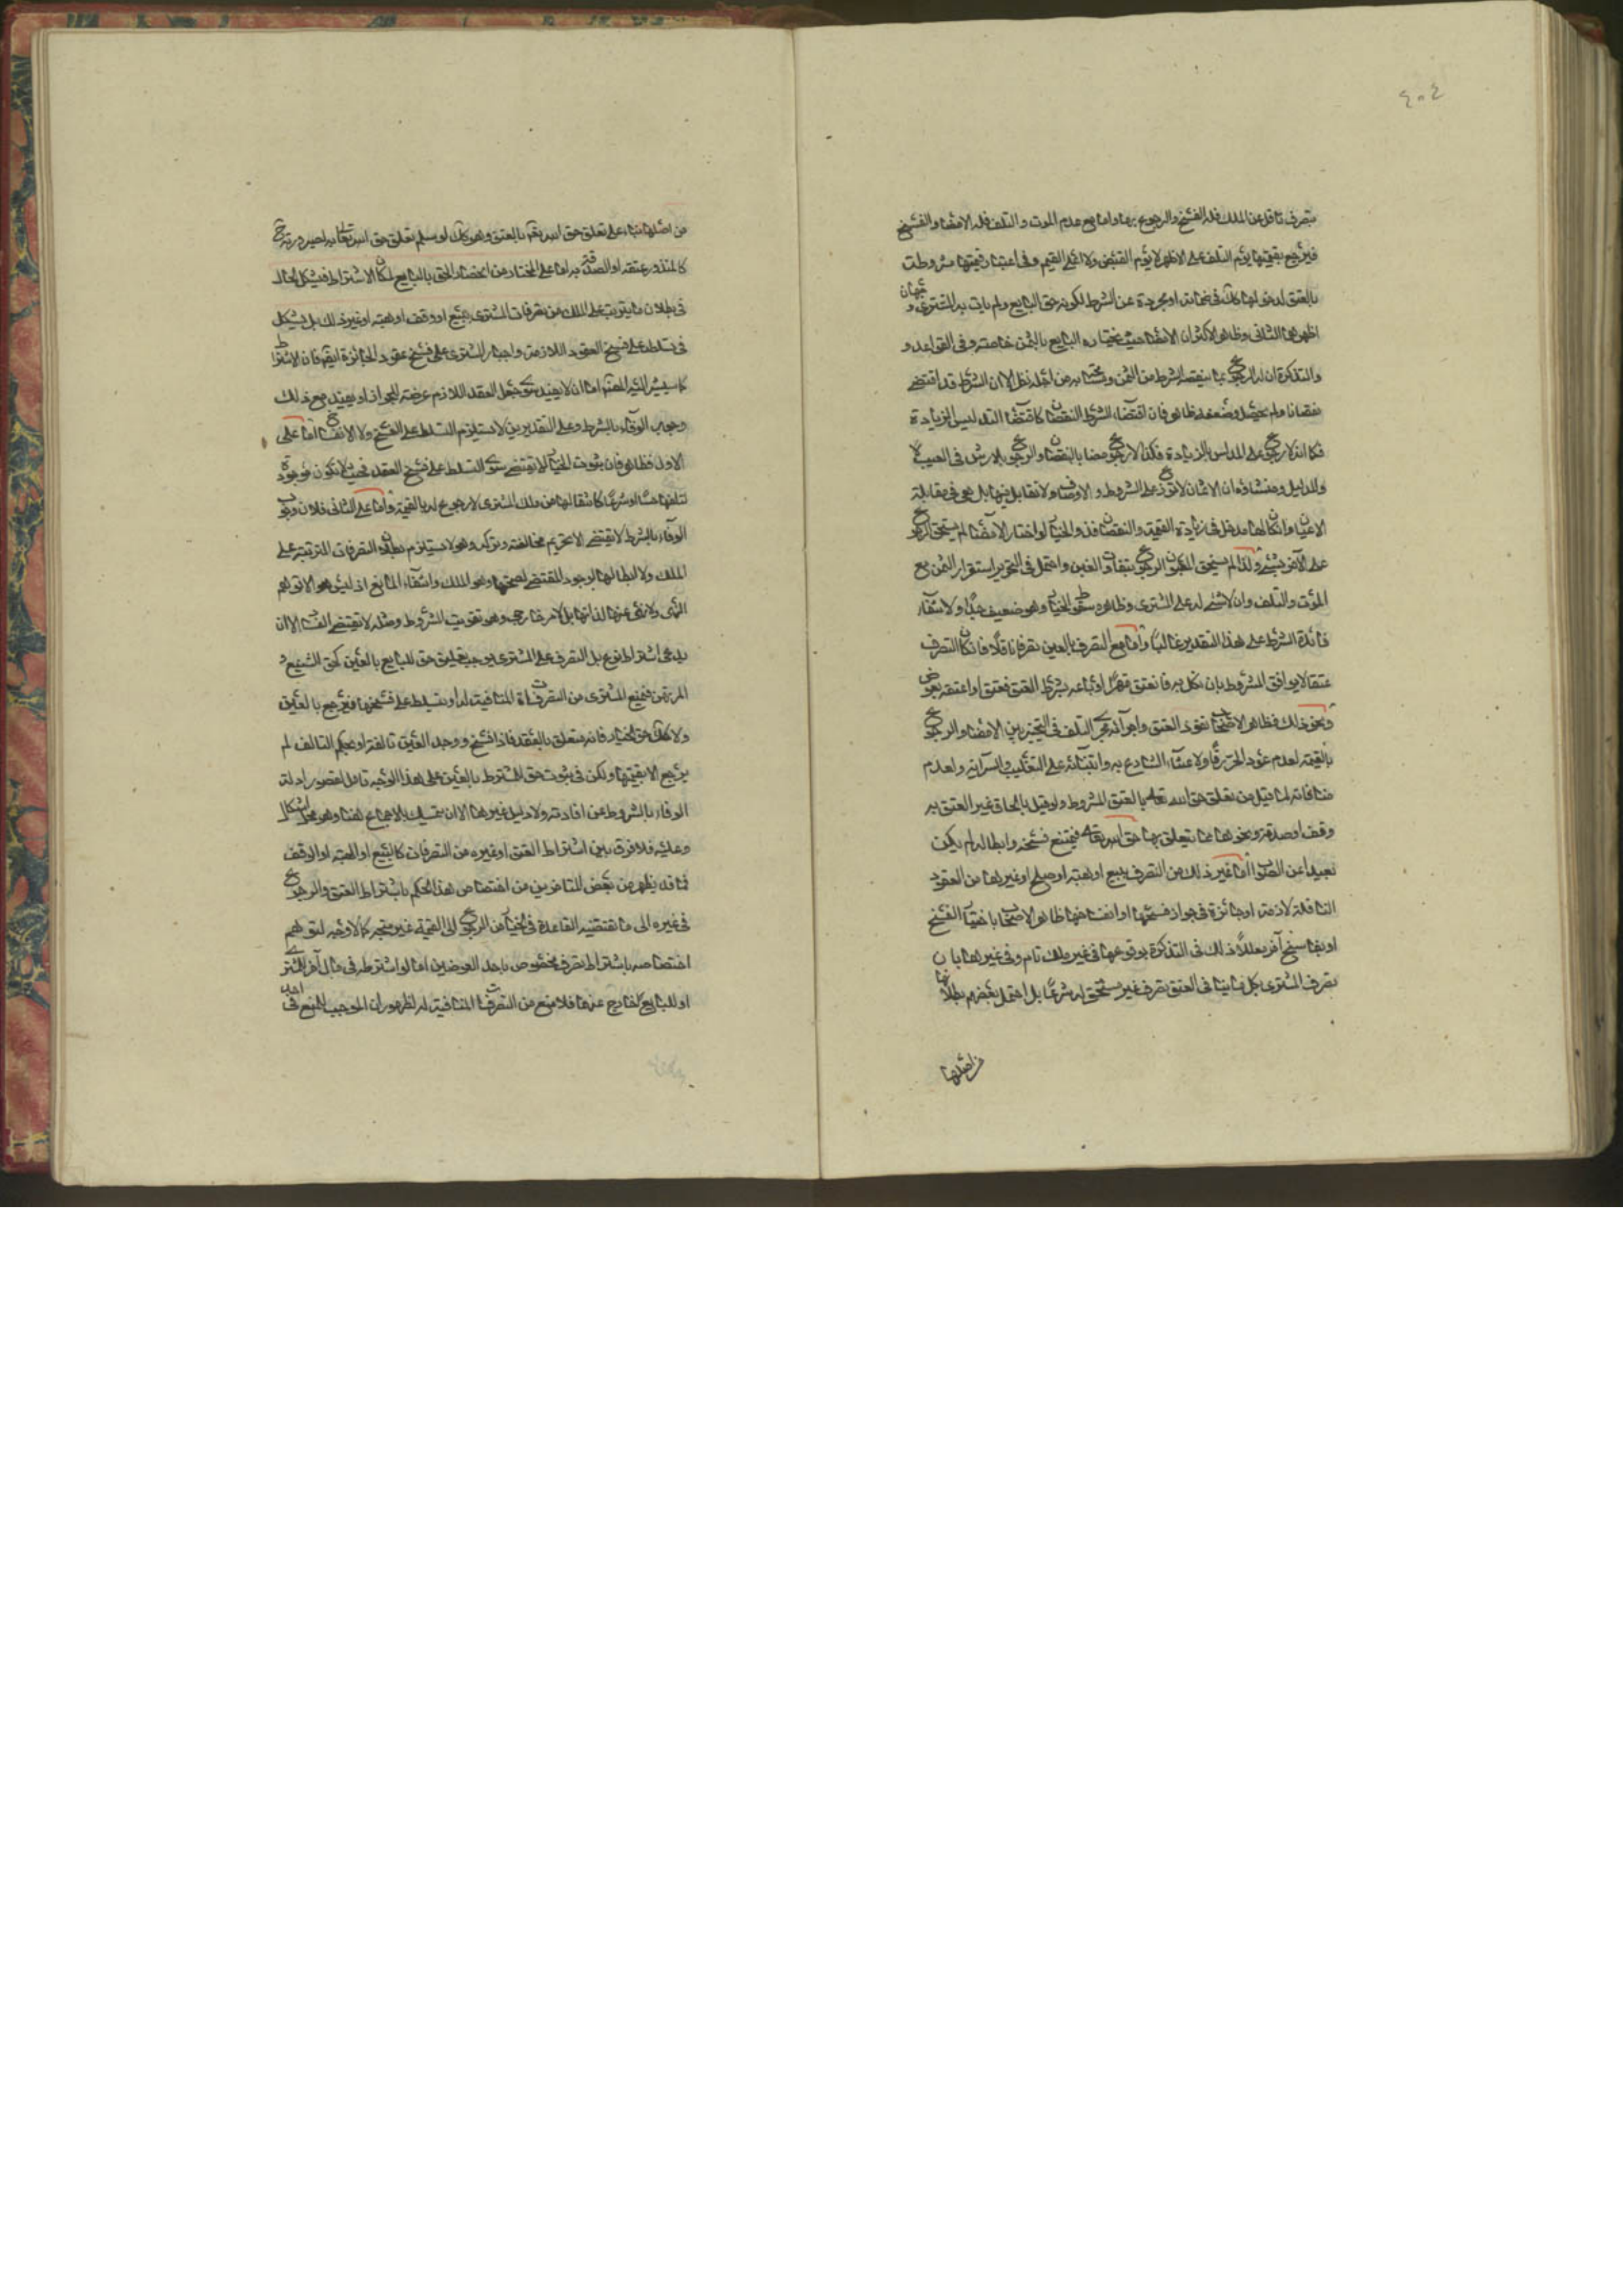 ٤٠٤
بتصرف ناقل عن الملك فله الفسخ والرجوع بها واما مع عدم الموت والتلف فله الامضاء والفسخ
فيرجع بقيمتها يوم التلف على الاظهر لا يوم القبض ولا اعلى القيم وفي اعتبار قيمتها مشروطة
بالعتق لدخولها كك في ضمانه او مجردة عن الشرط لكونه حق البايع ولم يات به المشتري وجهان
اظهرهما الثاني وظاهر الاكثر ان الامضاء حيث يختاره البايع بالثمن خاصة وفي القواعد و
والتذكرة ان له الرجوع بما ينقصه الشرط من الثمن من اجله نظرا الى ان الشرط قد اقتضى
نقصانا ولم يحصل وضعفه ظاهر فان اقتضاء الشرط النقصان كاقتضاء التدليس الزيادة
فكما انه لا رجوع على المدلس بالزيادة فكذا لا رجوع هنا بالنقصان والرجوع بالارش في العيب
وللدليل ومنشاؤه ان الاثمان لا توزع على الشروط والاوصاف ولا تقابل فيها بل هي في مقابلة
الاعيان وان كان لها مدخل في زيادة القيمة والنقصان وذو الخيار لو اختار الامضاء لم يستحق الرجوع
على الآخر بشيء ولذا لم يستحق المغبون الرجوع بتفاوت الغبن واحتمل في التحرير استقرار الثمن مع
الموت والتلف وان لا شيء له على المشتري وظاهره سقوط الخيار وهو ضعيف جدا ولانتفاء
فائدة الشرط على هذا التقدير غالبا واما مع التصرف بالعين تصرفا ناقلا فان كان التصرف
عتقا لا يوافق المشروط بان نكل به فانعتق قهرا او باعه بشرط العتق فعتق او اعتقه بعوض
ونحو ذلك فظاهر الاصحاب نفوذ العتق واجراءه مجرى التلف في التخيير بين الامضاء والرجوع
بالقيمة لعدم عود الحر رقا ولاعتناء الشارع به وابتنائه على التغليب والسراية ولعدم
منافاته لما قيل من تعلق حق الله تعالى بالعتق المشروط ولو قيل بالحاق غير العتق به
وقف او صدقة ونحوهما مما يتعلق بها حق الله تعالى فيمتنع فسخه وابطاله لم يكن
بعيدا عن الصواب اما غير ذلك من التصرف ببيع او هبة او صلح او غيرها من العقود
الناقلة لازمة او جائزة في جواز فسخها او انفساخها ظاهر الاصحاب باختيار الفسخ
او بفاسخ آخر معللا ذلك في التذكرة بوقوعها في غير ملك تام وفي غيرها بان
تصرف المشتري بكل ما ينافي العتق تصرف غير مستحق له شرعا بل احتمل بعضهم بطلانها
من اصلها
من اصلها بناء على تعلق حق الله تعالى بالعتق وهو كك لو سلم تعلق حق الله تعالى به لصيرورته ح
كالمنذور عتقه او الصدقة به اما على المختار من اختصاص الحق بالبايع لمكان الاشتراط فيشكل الحال
في بطلان ما يترتب على الملك من تصرفات المشتري ببيع او وقف او هبة او غير ذلك بل يشكل
في تسلطه على فسخ العقود اللازمة واجبار المشتري على فسخ عقود الجائزة ايضا فان الاشتراط
كما يشير اليه المصنف اما ان لا يفيد سوى جعل العقد اللازم عرضة للجواز او يفيد مع ذلك
وجوب الوفاء بالشرط وعلى التقديرين لا يستلزم التسلط على الفسخ ولا الانفساخ اما على
الاول فظاهر فان ثبوت الخيار لا يقتضي سوى التسلط على فسخ العقد فحيث لا تكون موجودة
لتلفها حسا او شرعا كانتقالها عن ملك المشتري لا رجوع له بالقيمة واما على الثاني فلان وجوب
الوفاء بالشرط لا يقتضي الا تحريم مخالفته وتركه وهو لا يستلزم بطلان التصرفات المترتبة على
الملك ولا ابطالها لوجود المقتضي لصحتها وهو الملك وانتفاء المانع اذ ليس هو الا توهم
النهي ولا نهي عنها لذاتها بل لامر خارجي وهو تفويت الشروط ومثله لا يقتضي الفساد الا ان
يدعى اشتراط نوع بل التصرف على المشتري يوجب تعلق حق للبايع بالعين كحق الشفيع و
المرتهن فيمنع المشتري من التصرفات المنافية له او يتسلط على فسخها فيرجع بالعين
ولا كك حق الخيار فانه متعلق بالعقد فاذا فسخ ووجد العين تالفة او بحكم التالف لم
يرجع الا بقيمتها ولكن في ثبوت حق المشترط بالعين على هذا الوجه تامل لقصور ادلة
الوفاء بالشروط عن افادته ولا دليل غيرها الا ان يتمسك بالاجماع هنا وهو محل اشكال
وعليه فلا فرق بين اشتراط العتق او غيره من التصرفات كالبيع او الهبة او الوقف
فما قد يظهر من بعض المتاخرين من اختصاص هذا الحكم باشتراط العتق والرجوع
في غيره الى ما تقتضيه القاعدة في الخيار من الرجوع الى القيمة غير متجه كما لا وجه لتوهم
اختصاصه باشتراط تصرف مخصوص باحد العوضين اما لو اشترطه في مال آخر للمشتري
او للبايع كخارج عنهما فلا منع من التصرفات المنافية له لظهور ان الموجب للمنع في